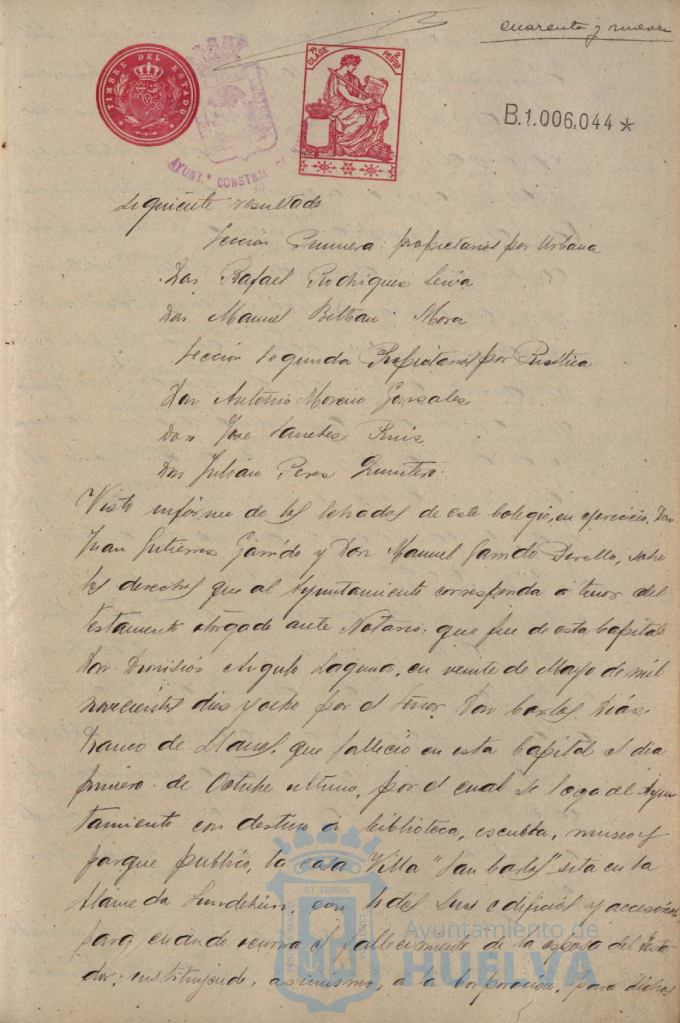 cuarenta y nueve
TIMBRE DEL ESTADO
CLASE
AYUNT.º CONSTNAL
B.1.006,044*
siguiente resultado
Seccion Primera: propietarios por Urbana
Don Rafael Rodriguez Leiva
Don Manuel Beltran Mora
Seccion Segunda Propietarios por Rustica
Don Antonio Moreno Gonzales
Don Jose Sanches Ruis
Don Julian Peres Quintero.
Visto informe de los letrados de este Colegio, en ejercicio, Don
Juan Gutierres Garrido y Don Manuel Garrido Perello, sobre
los derechos que al Ayuntamiento corresponda á tenor del
testamento otorgado ante Notario, que fue de esta Capital
Don Dionisio Angulo Laguna, en veinte de Mayo de mil
novecientos dies y ocho por el Señor Don Carlos Dias
Franco de Llanos, que fallecio en esta Capital el dia
primero de Octubre ultimo, por el cual se lega al Ayun
tamiento con destino á biblioteca, escuela, museo y
parque publico, la casa Villa "San Carlos" sita en la
Alameda Sundehin, con todos sus edificios y accesorios,
para cuando ocurra el fallecimiento de la esposa del testa
dor; instituyendo, asimismo, á la Corporacion, para dichos
ET TERRAE
Ayuntamiento de
HUELVA